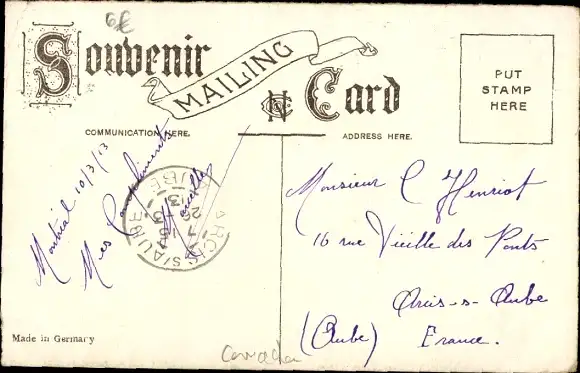 6€
Souvenir
MAILING
Card
PUT
STAMP
HERE
COMMUNICATION HERE.
ADDRESS HERE.
Montréal 10/3/13
Mes Compliments
ARCIS S/AUBE
AUBE
Monsieur C Henriot
16 rue Vieille des Ponts
Arcis-s-Aube
(Aube) France.
Made in Germany
Canada